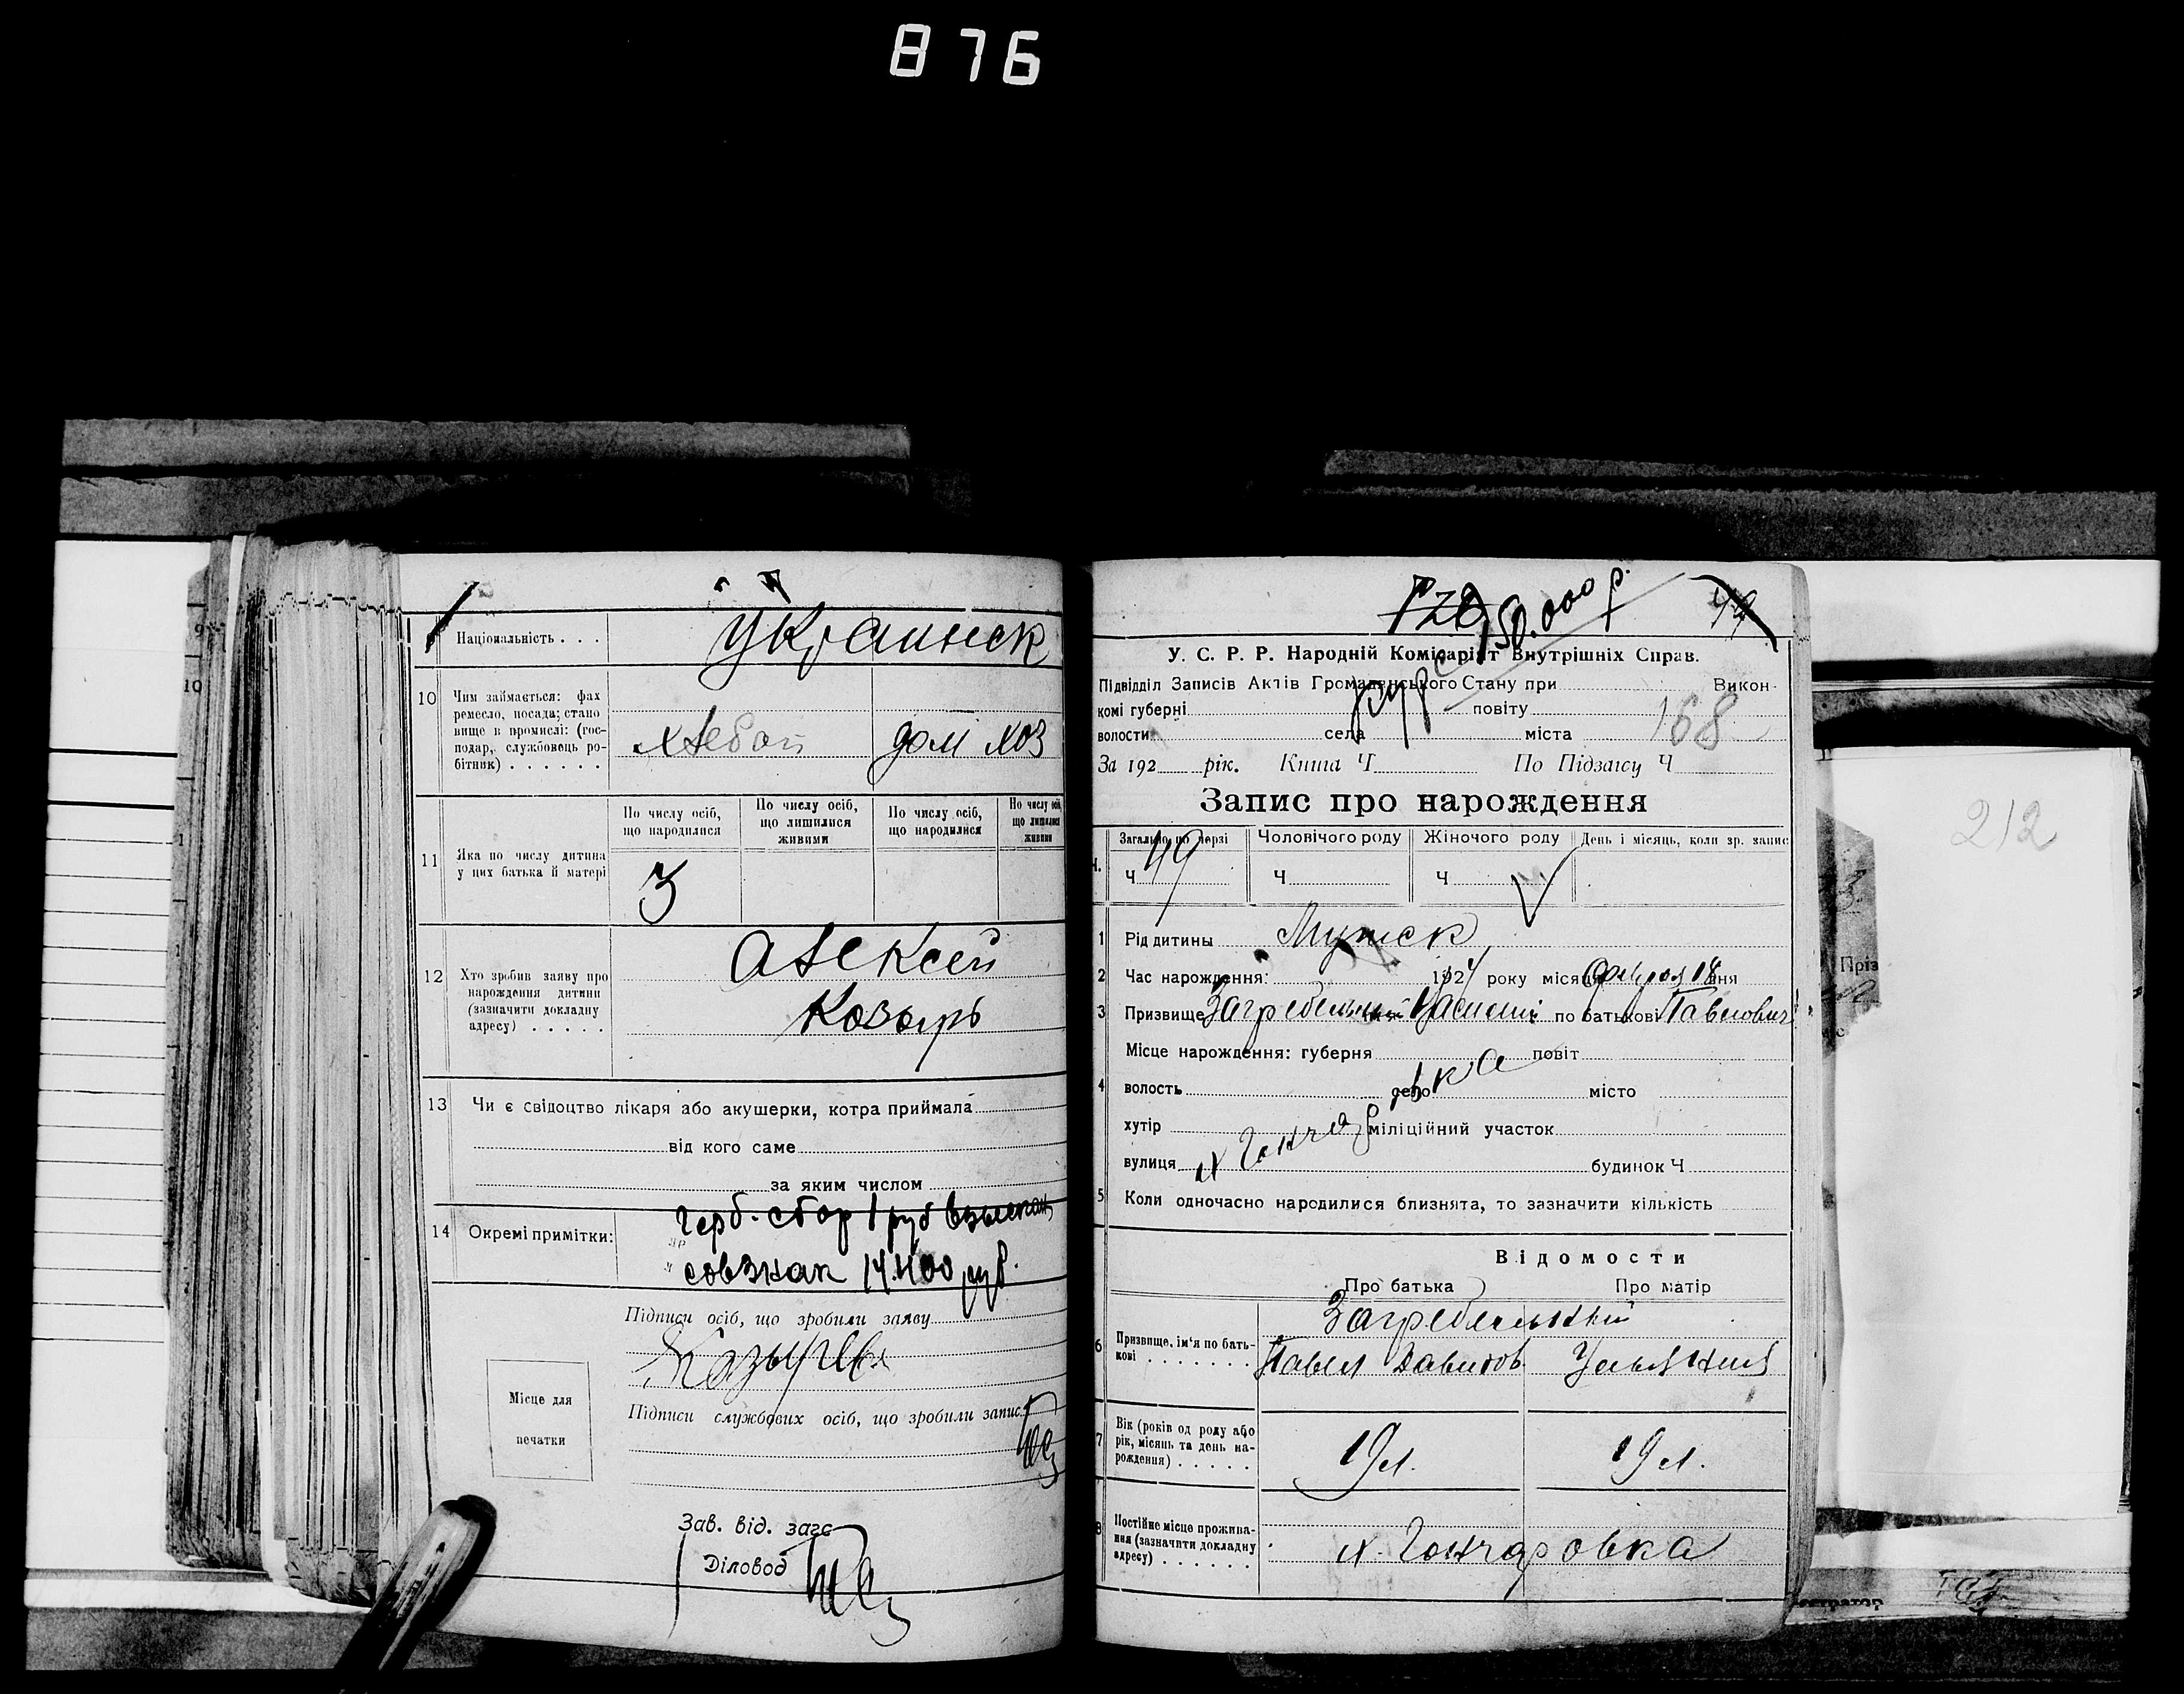 876
Національність . . .
украинск
10 Чим займається: фах
ремесло, посада; стано
вище в промислі: (гос-
подар, службовець ро-
бітник) . . . . . .
хлебоп дом хоз
По числу осіб, що народилися
По числу осіб, що лишилися живими
По числу осіб, що народилися
По числу осіб, що лишилися живими
11 Яка по числу дитина
у цих батька й матері
3
12 Хто зробив заяву про
нарождення дитини
(зазначити докладну
адресу) . . . . .
Алексей
Козырь
13 Чи є свідоцтво лікаря або акушерки, котра приймала
від кого саме
за яким числом
14 Окремі примітки:
герб. сбор 1 руб взыскан
совзнак 14.400 руб.
Підписи осіб, що зробили заяву
Місце для
печатки
Підписи службових осіб, що зробили запис
Зав. від. загс
Діловод
150.000 р.
49
У. С. Р. Р. Народній Комісаріят Внутрішніх Справ.
Підвідділ Записів Актів Громадянського Стану при Викон-
комі губерні повіту
курс
168
волости села міста
За 192 рік. Книга Ч По Підзагсу Ч
Запис про нарождення
Загально по черзі Чоловічого роду Жіночого роду День і місяць, коли зр. запис
Ч 49 Ч Ч
1 Рід дитини Мужск
2 Час нарождення: 1924 року місяця апреля 18 дня
3 Призвище Загребельный Василий по батькові Павлович
Місце нарождення: губерня повіт
4 волость село місто
хутір міліційний участок
х Гончаровка
вулиця будинок Ч
5 Коли одночасно народилися близнята, то зазначити кількість
Відомости
Про батька Про матір
Загребельный
6 Призвище, ім'я по бать-
кові . . . . . . .
Павел Давидов Ульяния
7 Вік (років од роду або
рік, місяць та день на-
рождення) . . . . .
19 л. 19 л.
8 Постійне місце прожива-
ння (зазначити докладну
адресу) . . . . . .
х. Гончаровка
212
Пріз